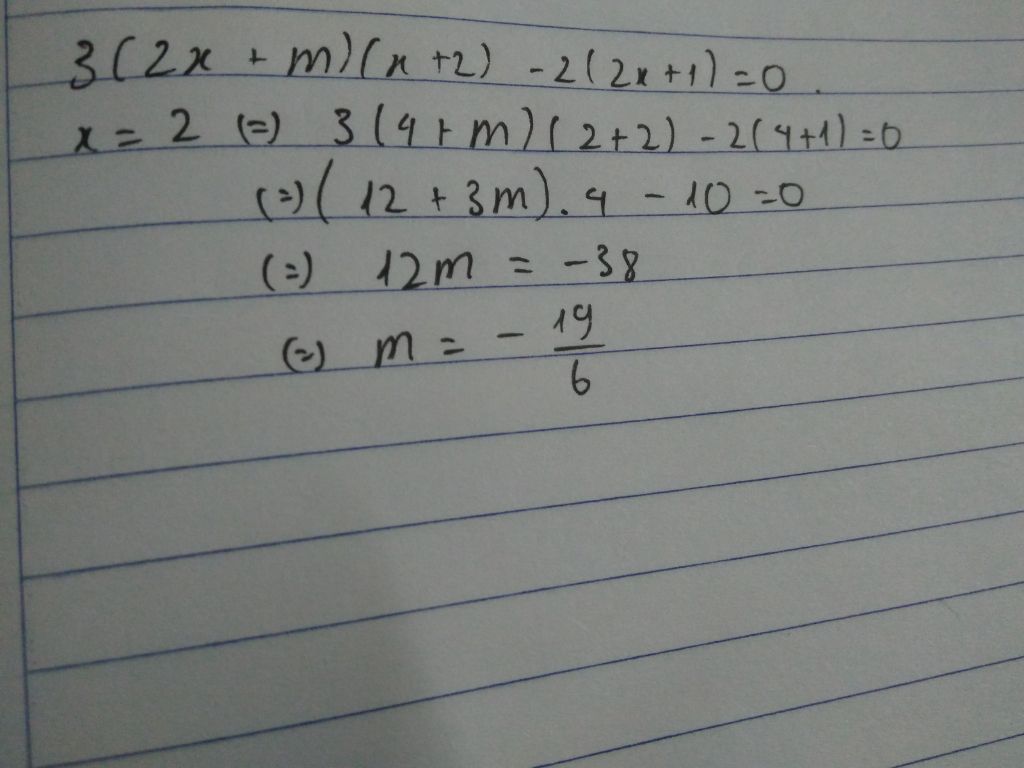 3(2x + m)(x+2) - 2(2x+1) = 0.
x = 2 (=) 3(4+m)(2+2) - 2(4+1) = 0
(=) (12 + 3m).4 - 10 = 0
(=) 12m = -38
(=) m = - 19/6